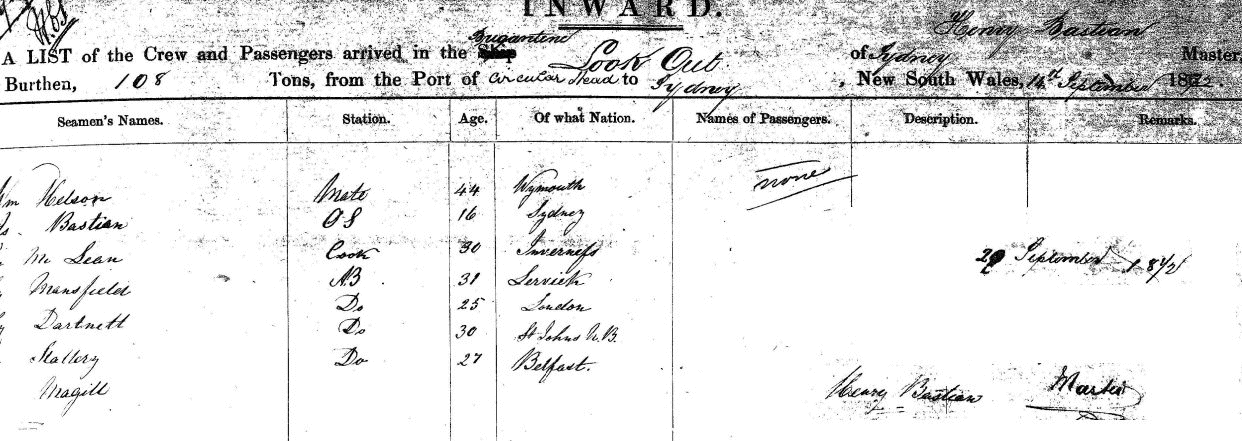 INWARD.
Henry Bastian
Brigantine
A LIST of the Crew and Passengers arrived in the Ship Look Out of Sydney Master,
Burthen, 108 Tons, from the Port of Circular Head to Sydney, New South Wales, 14th September 1872.
Seamen's Names. Station. Age. Of what Nation. Names of Passengers. Description. Remarks.
none
Wm Nelson Mate 44 Wymouth
Bastian OS 16 Sydney
Mc Lean Cook 30 Inverness
29 September 1872
Mansfield AB 31 Lerwick
Dartnett Do 25 London
Slattery Do 30 St Johns N.B.
Magill Do 27 Belfast.
Henry Bastian Master